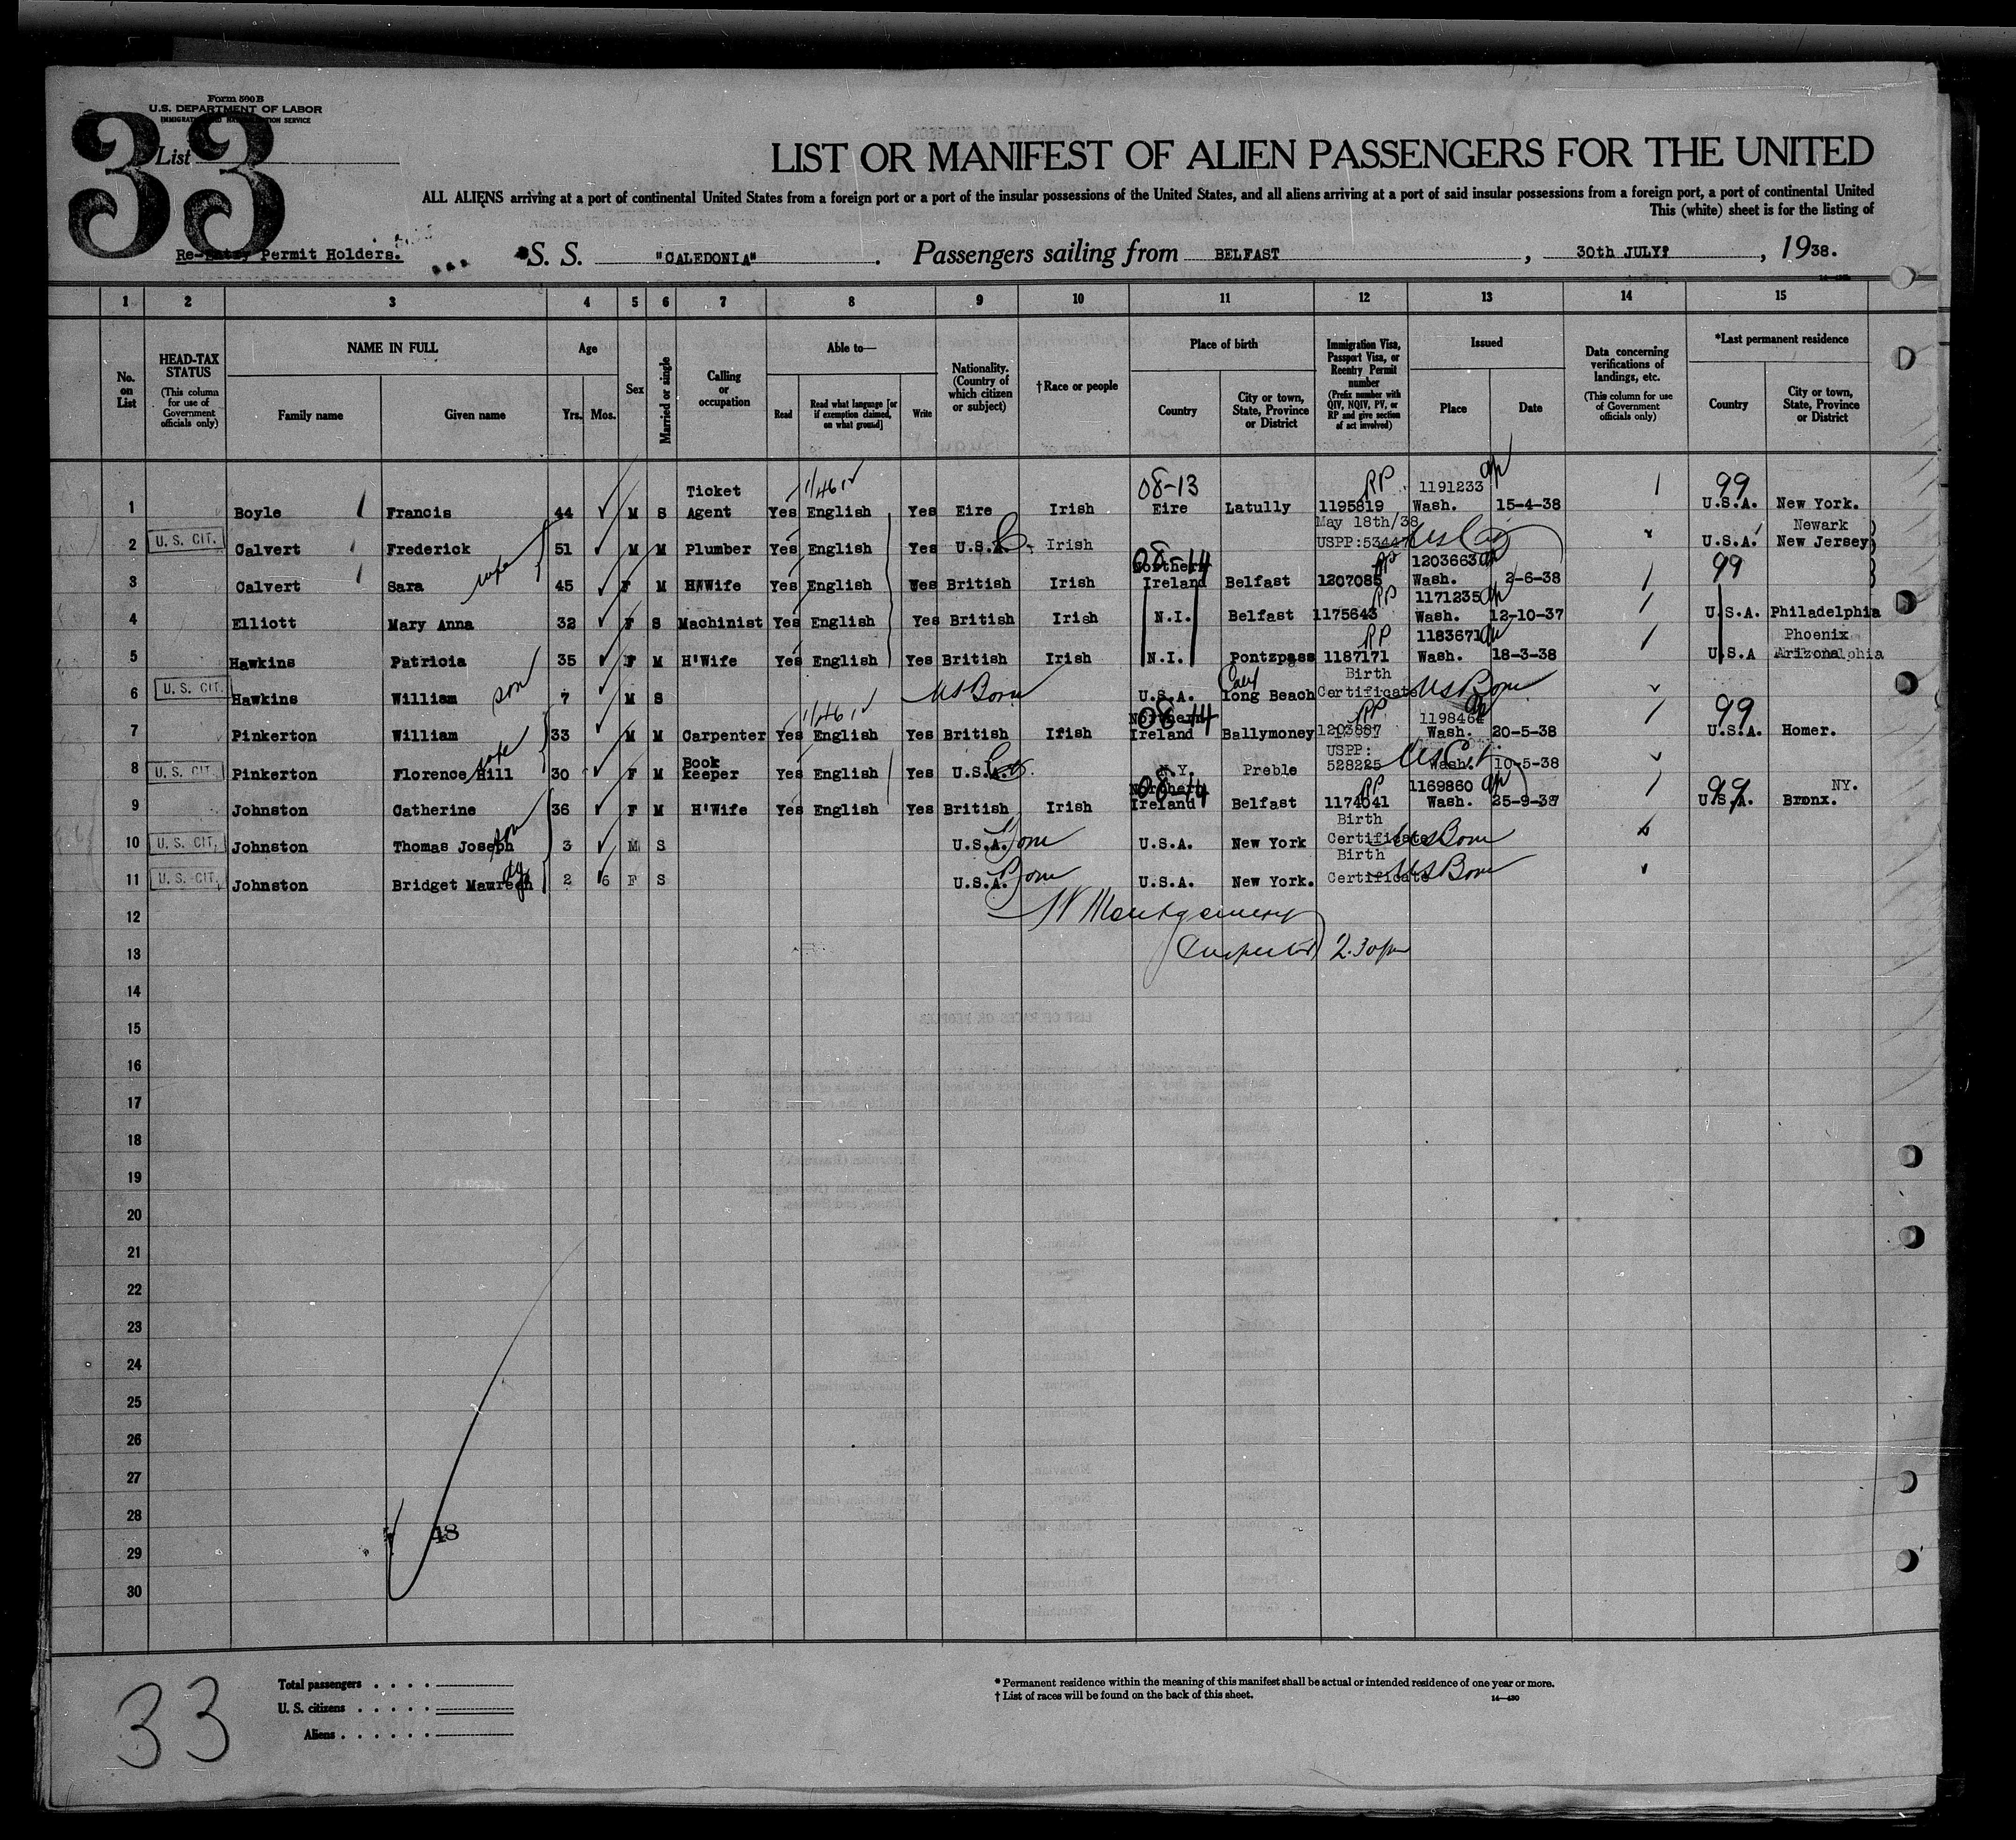 Form 500 B
U.S. DEPARTMENT OF LABOR
IMMIGRATION AND NATURALIZATION SERVICE
33
List
LIST OR MANIFEST OF ALIEN PASSENGERS FOR THE UNITED
ALL ALIENS arriving at a port of continental United States from a foreign port or a port of the insular possessions of the United States, and all aliens arriving at a port of said insular possessions from a foreign port, a port of continental United
This (white) sheet is for the listing of
Re-Entry Permit Holders. S. S. "CALEDONIA" . Passengers sailing from BELFAST , 30th JULY , 1938.
1 2 3 4 5 6 7 8 9 10 11 12 13 14 15
No. on List
HEAD-TAX STATUS (This column for use of Government officials only)
NAME IN FULL Family name Given name
Age Yrs. Mos.
Sex
Married or single
Calling or occupation
Able to— Read Read what language [or if exemption claimed, on what ground] Write
Nationality. (Country of which citizen or subject)
†Race or people
Place of birth Country City or town, State, Province or District
Immigration Visa, Passport Visa, or Reentry Permit number (Prefix number with QIV, NQIV, PV, or RP and give section of act involved)
Issued Place Date
Data concerning verifications of landings, etc. (This column for use of Government officials only)
*Last permanent residence Country City or town, State, Province or District
08-13 RP 1191233 99
1 Boyle Francis 44 M S Ticket Agent Yes English Yes Eire Irish Eire Latully 1195819 Wash. 15-4-38 U.S.A. New York.
May 18th/38 Newark
2 U. S. CIT. Calvert Frederick 51 M M Plumber Yes English Yes U.S.A. Irish USPP:53447 US Cit U.S.A. New Jersey
08-14 RP 1203663 99
3 Calvert Sara wife 45 F M H'Wife Yes English Yes British Irish Northern Ireland Belfast 1207085 Wash. 2-6-38
RP 1171235
4 Elliott Mary Anna 32 F S Machinist Yes English Yes British Irish N.I. Belfast 1175643 Wash. 12-10-37 U.S.A. Philadelphia
RP 1183671 Phoenix
5 Hawkins Patricia 35 F M H'Wife Yes English Yes British Irish N.I. Pontzpass 1187171 Wash. 18-3-38 U.S.A Arizona
6 U. S. CIT. Hawkins William son 7 M S US Born U.S.A. Calif long Beach Birth Certificate US Born
08-14 RP 1198464 99
7 Pinkerton William 33 M M Carpenter Yes English Yes British Irish Northern Ireland Ballymoney 1203887 Wash. 20-5-38 U.S.A. Homer.
8 U. S. CIT. Pinkerton Florence Hill wife 30 F M Book keeper Yes English Yes U.S.A. N.Y. Preble USPP: 528225 US Cit. Wash. 10-5-38
08-14 RP 1169860 99 NY.
9 Johnston Catherine 36 F M H'Wife Yes English Yes British Irish Northern Ireland Belfast 1174041 Wash. 25-9-37 U.S.A. Bronx.
10 U. S. CIT. Johnston Thomas Joseph son 3 M S U.S.A. Born U.S.A. New York Birth Certificate US Born
11 U. S. CIT. Johnston Bridget Maureen 2 6 F S U.S.A. Born U.S.A. New York. Birth Certificate US Born
12 Montgomery
13 Inspector 2.30 pm
14
15
16
17
18
19
20
21
22
23
24
25
26
27
28
29
30
48
33
Total passengers
U. S. citizens
Aliens
* Permanent residence within the meaning of this manifest shall be actual or intended residence of one year or more.
† List of races will be found on the back of this sheet.
14—430